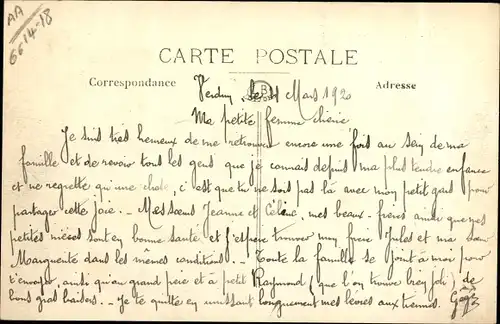 AA
6614-18
CARTE POSTALE
Correspondance
Adresse
Verdun le Mars 1920
Ma petite femme chérie
Je suis très heureux de me retrouver encore une fois au sein de ma
famille et de revoir tous les gens que je connais depuis ma plus tendre enfance
et ne regrette qu'une chose, c'est que tu ne sois pas là avec mon petit gars pour
partager cette joie. - Mes sœurs Jeanne et Céline, mes beaux-frères ainsi que mes
petites nièces sont en bonne santé et j'espère trouver mon frère Jules et ma sœur
Marguerite dans les mêmes conditions. - Toute la famille se joint à moi pour
t'envoyer, ainsi qu'au grand père et à petit Raymond (que l'on trouve bien joli) de
bons gros baisers. - Je te quitte en unissant longuement mes lèvres aux tiennes.